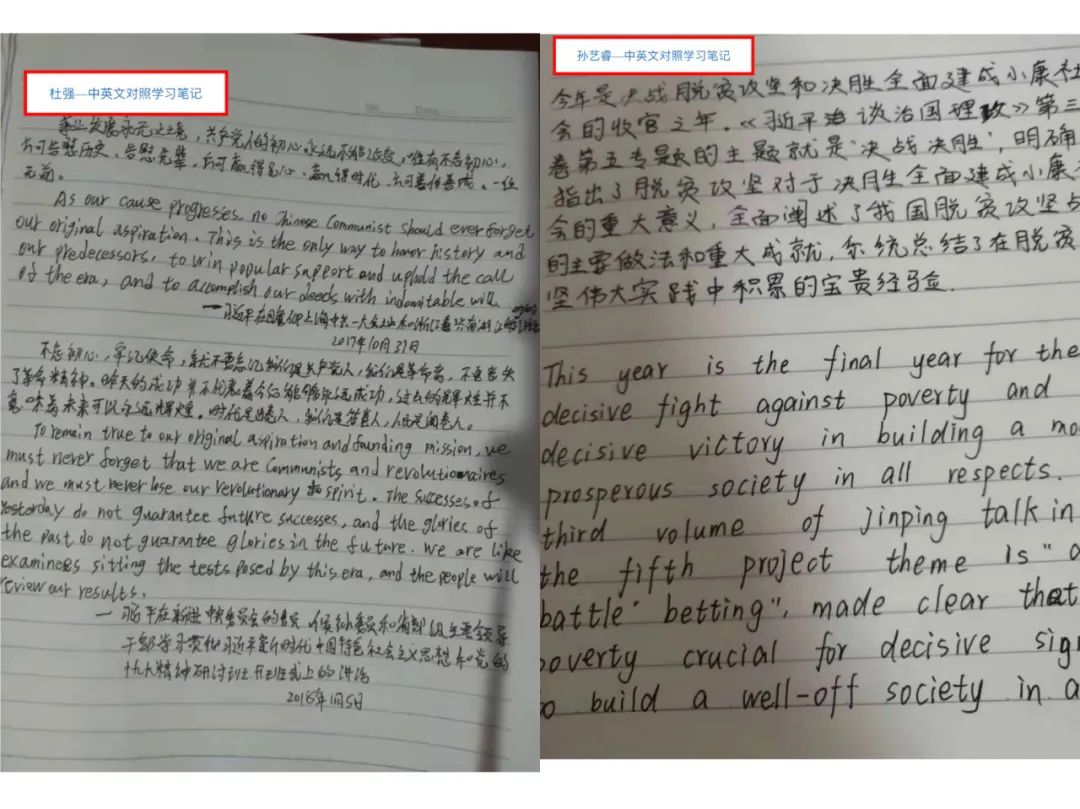 杜强—中英文对照学习笔记
事业发展永无止境，共产党人的初心永远不能改变，唯有不忘初心，
方可告慰历史、告慰先辈，方可赢得民心、赢得时代，方可善作善成、一往
无前。
As our cause progresses, no Chinese Communist should ever forget
our original aspiration. This is the only way to honor history and
our predecessors, to win popular support and uphold the call
of the era, and to accomplish our deeds with indomitable will.
一习近平在瞻仰上海中共一大会址和浙江嘉兴南湖
2017年10月31日
不忘初心，牢记使命，就不要忘记我们是共产党人，我们是革命者，不要丧失
了革命精神。昨天的成功并不代表着今后能够永远成功，过去的辉煌并不
意味着未来可以永远辉煌。时代是出卷人，我们是答卷人，人民是阅卷人。
To remain true to our original aspiration and founding mission, we
must never forget that we are Communists and revolutionaires
and we must never lose our revolutionary spirit. The successes of
Yesterday do not guarantee future successes, and the glories of
the past do not guarantee glories in the future. We are like
examinees sitting the tests posed by this era, and the people will
review our results.
一习近平在新进中央委员会的委员、候补委员和省部级主要领导
干部学习贯彻习近平新时代中国特色社会主义思想和党的
十九大精神研讨班开班式上的讲话
2018年1月5日
孙艺睿—中英文对照学习笔记
今年是决战脱贫攻坚和决胜全面建成小康社
会的收官之年。《习近平治谈治国理政》第三
卷第五专题的主题就是"决战决胜"，明确
指出了脱贫攻坚对于决胜全面建成小康
会的重大意义，全面阐述了我国脱贫攻坚
的主要做法和重大成就，系统总结了在脱贫
坚伟大实践中积累的宝贵经验.
This year is the final year for the
decisive fight against poverty and
decisive victory in building a mo
prosperous society in all respects.
third volume of jinping talk in
the fifth project theme is "a
battle' betting", made clear that
poverty crucial for decisive sign
to build a well-off society in a